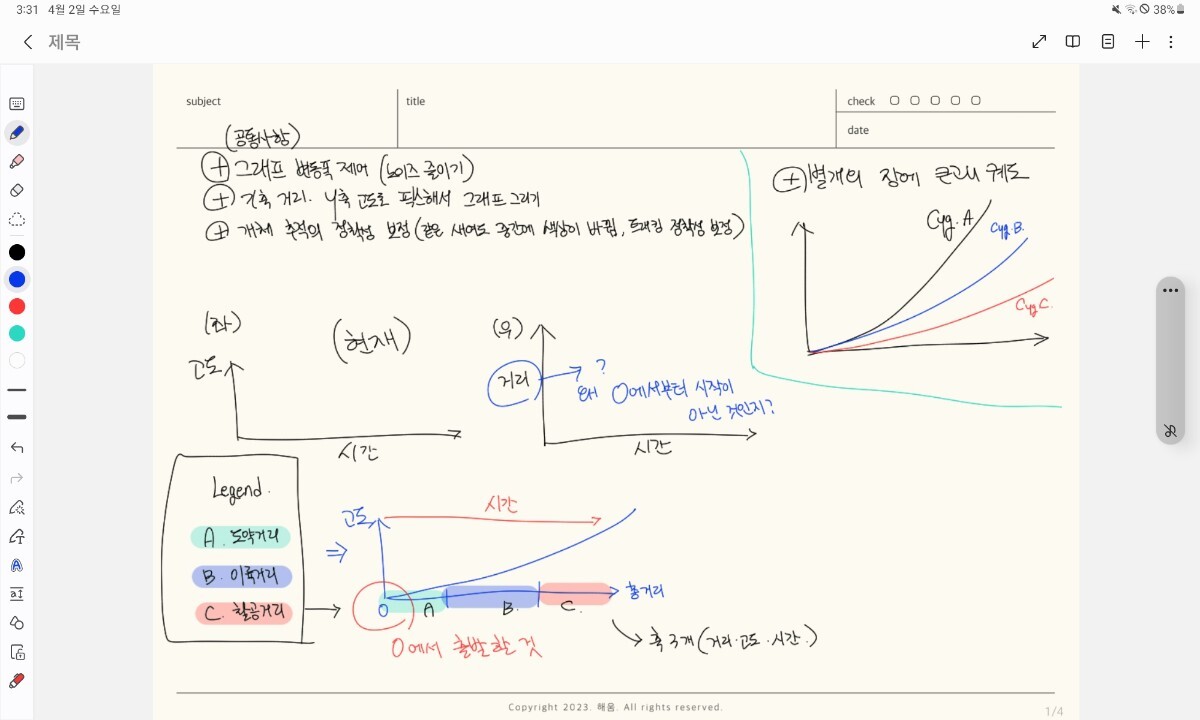 3:31 4월 2일 수요일
38%
제목
subject
title
check
date
(공통사항)
⊕ 그래프 변동폭 제어 (노이즈 줄이기)
⊕ X축 거리. Y축 고도로 픽스해서 그래프 그리기
⊕ 개체 추적의 정확성 보정 (같은 새여도 중간에 색상이 바뀜, 트래킹 정확성 보정)
⊕ 별개의 장에 큰고니 궤도
Cyg. A
Cyg. B.
Cyg C.
(좌)
(현재)
고도
시간
(우)
거리
?
왜 0에서부터 시작이
아닌 것인지?
시간
Legend.
A. 도약거리
B. 이륙거리
C. 활공거리
⇒
고도
시간
0
A
B.
C.
총거리
0에서 출발할 것
축 3개 (거리·고도·시간.)
Copyright 2023. 해움. All rights reserved.
1/4